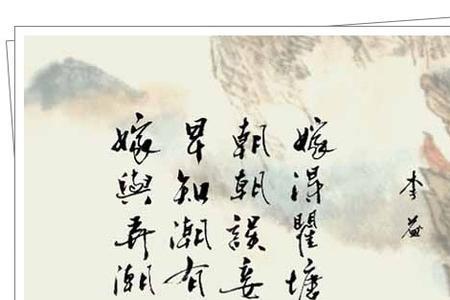 李益
嫁得瞿塘
朝朝誤妾
早知潮有
嫁與弄潮